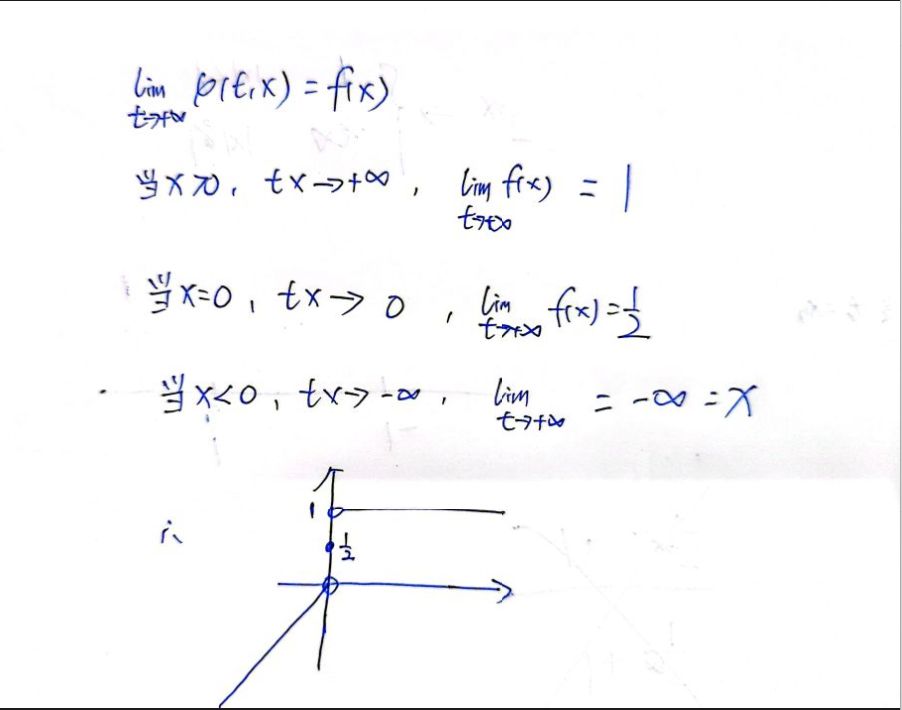 lim t→+∞ φ(t,x) = f(x)
当x>0, tx→+∞, lim t→+∞ f(x) = 1
当x=0, tx→0, lim t→+∞ f(x)=1/2
当x<0, tx→-∞, lim t→+∞ = -∞ = x
1
1/2